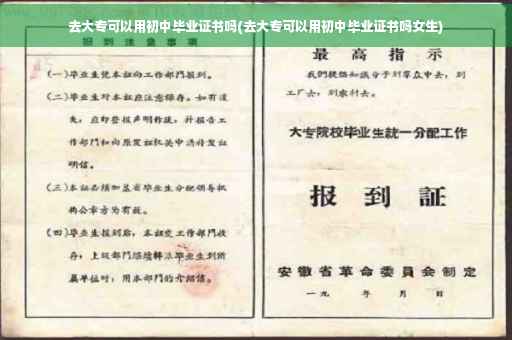 去大专可以用初中毕业证书吗(去大专可以用初中毕业证书吗女生)
报到注意事项
(一)毕业生凭本证向工作部门报到。
(二)毕业生对本证应注意保存。如有遗
失，应即登报声明作废，并报告工
作部门和向原发证机关申请补发证
明信。
(三)本证必须加盖省毕业生分配领导机
构公章方为有效。
(四)毕业生报到后，本证交工作部门收
存；上级部门
毕业生到所
属单位时，用本部门的介绍信。
最高指示
我们提倡知识分子到群众中去，到
工厂去，到农村去。
大专院校毕业生統一分配工作
报到証
安徽省革命委員会制定
一九 年 月 日